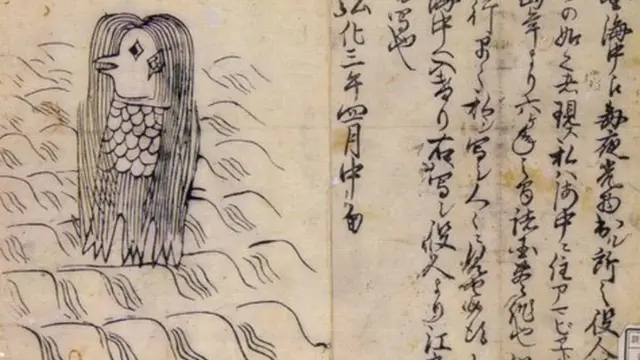 海中え毎夜光物出ル所之役人
の如之者現ス私ハ海中ニ住アマビヱ
年より六ヶ年之間諸国豊作也
行早々私写シ人々ニ見せ候
海中へ入けり右写シ役人より江
写也
弘化三年四月中旬